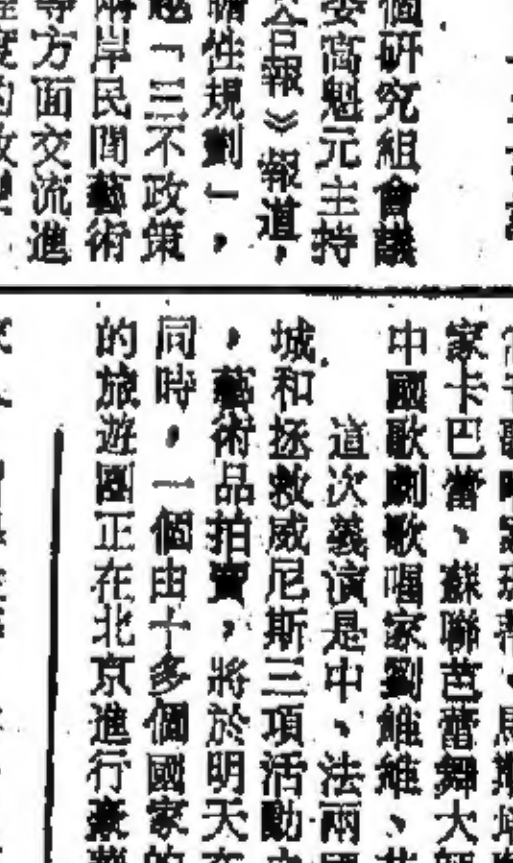 個研究組會議
委高魁元主持
合報》報道，
瞻性規劃」，
越「三不政策
兩岸民間藝術
等方面交流進
家卡巴當、蘇聯芭蕾舞大
中國歌劇歌唱家劉維維、
這次義演是中、法兩
城和拯救威尼斯三項活動
，藝術品拍賣，將於明天在
同時，一個由十多個國家的
的旅遊團正在北京進行豪